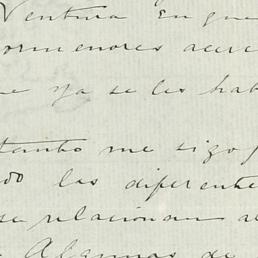 Ventura en que
pormenores acerc
e ya se les hab
tanto me sigo p
do las diferente
se relacionan al
Algunas de